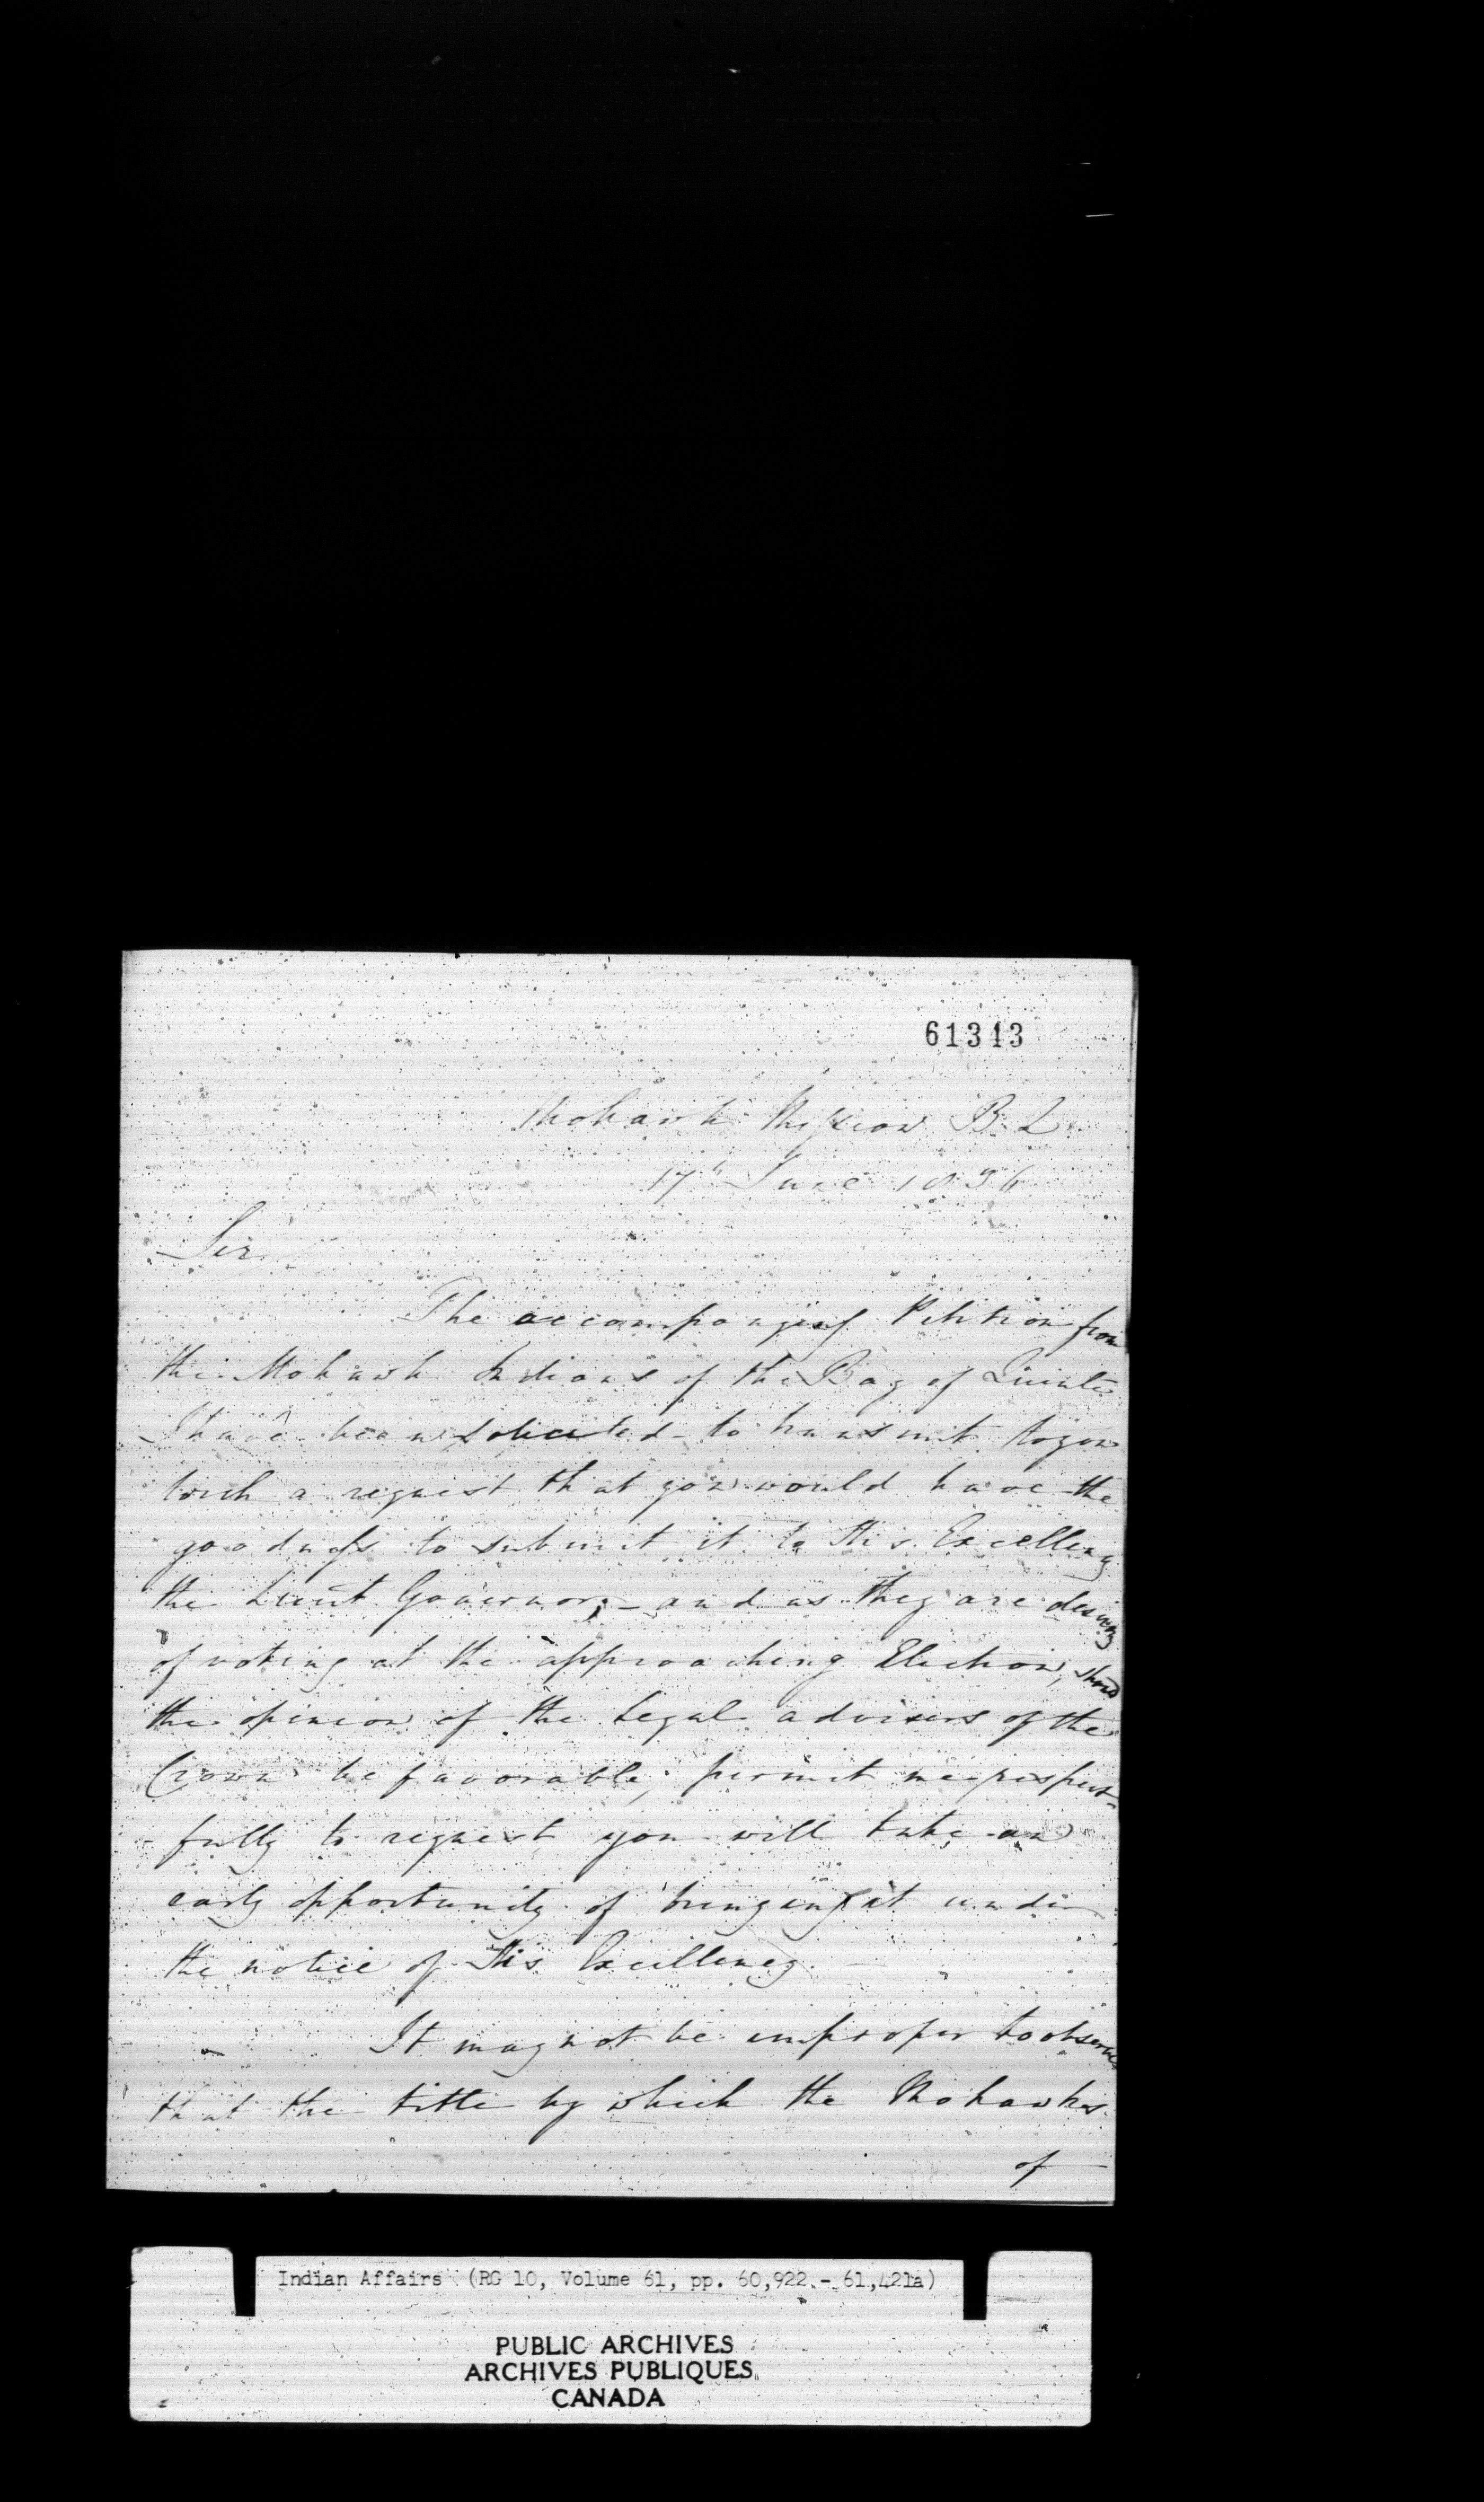 61343
Mohawk Mission B. Q.
17th June 1836
Sir,
The accompanying Petition from
the Mohawk Indians of the Bay of Quinte
I have been solicited to transmit to you
with a request that you would have the
goodness to submit it to His Excellency
the Lieut Governor; – and as they are desirous
of voting at the approaching Election, shoud
the opinion of the Legal advisers of the
Crown be favorable; permit me respect-
fully to request you will take an
early opportunity of bringing it under
the notice of His Excellency.
It may not be improper to observe
that the title by which the Mohawks
of
Indian Affairs (RG 10, Volume 61, pp. 60,922 - 61,421a)
PUBLIC ARCHIVES
ARCHIVES PUBLIQUES
CANADA